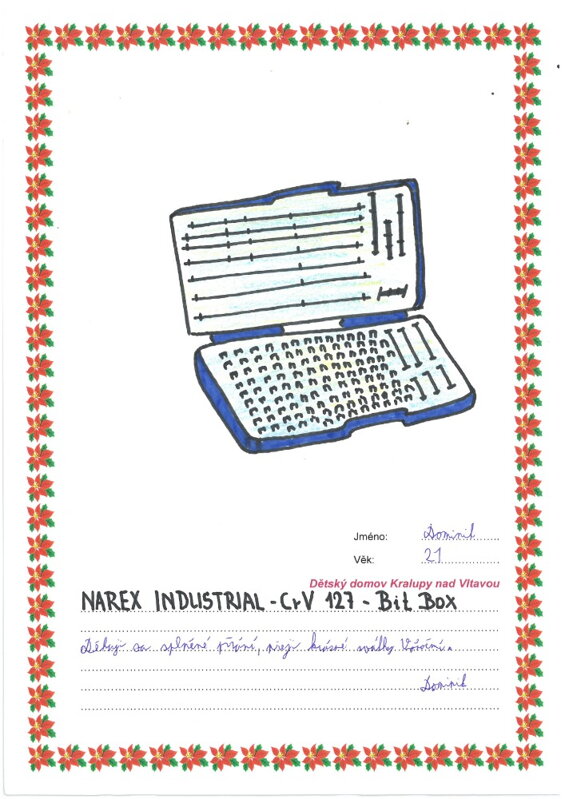 Jméno: Dominik
Věk: 21
Dětský domov Kralupy nad Vltavou
NAREX INDUSTRIAL - CrV 127 - Bit Box
Děkuji za splněné přání, přeji krásné svátky Vánoční.
Dominik